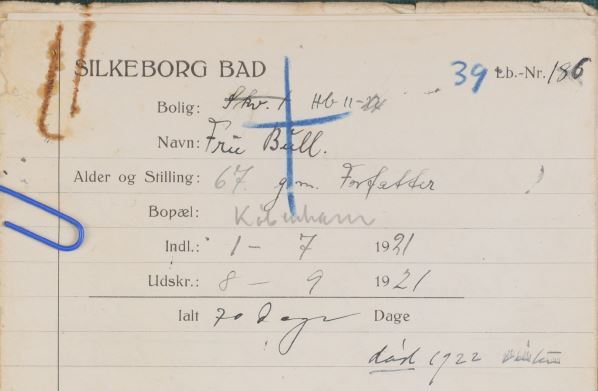 SILKEBORG BAD 39 Lb.-Nr. 186
Bolig: Skv. 1 Hb 11-
Navn: Frue Bull.
Alder og Stilling: 67. gm. Forfatter
Bopæl: København
Indl.: 1 - 7 1921
Udskr.: 8 - 9 1921
Ialt 70 Dage Dage
død 1922